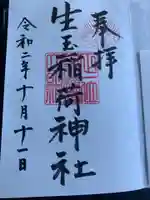 奉拝
生玉稲荷神社
令和二年十月十一日